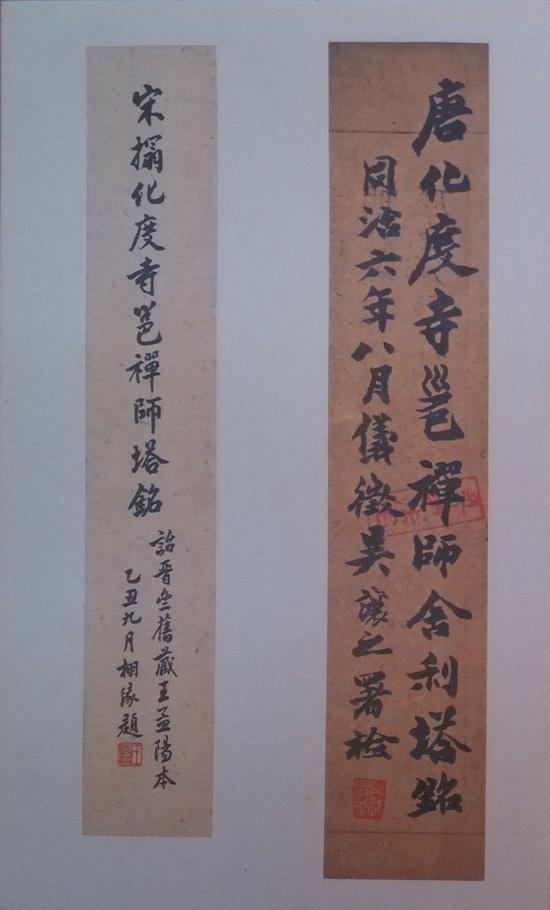 唐化度寺邕禪師舍利塔銘
同治六年八月儀徵吳讓之署檢
宋搨化度寺邕禪師塔銘
詒晉齋舊藏王孟陽本
乙丑九月栩緣題